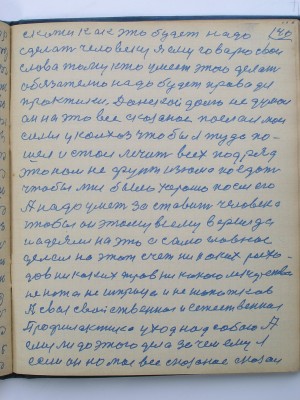 скажи как это будет надо 140
сделать человеку я ему говорю свои
слова тому кто умеет этого делать
обязательно надо будет правда и
практики. Донской дом не думал
он на это все сказаное послал мои
силы у колхоз чтобы я туда по-
шел и стал лечить всех подряд
это нам не фрукт из кого поедать
чтобы мы было хорошо после его
А надо умет заставить человека
чтобы он этому всему верил да
надеялся на это самое главное
деньги на этот счет ни каких расхо-
дов ни каких трав ни какого лекарства
не ножа не шприца и не таблетков
А своя свойственная и естественная
Профилактика уход над собою А
ему ли до этого дела зачем ему я
если он на мое все сказаное сказал